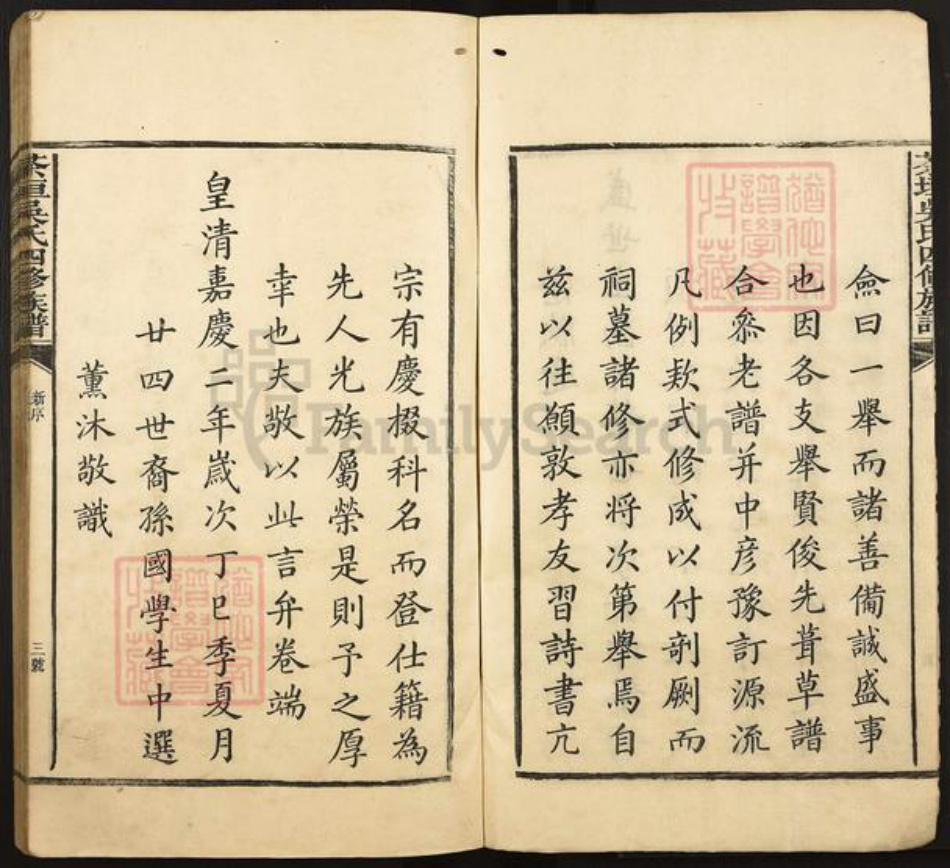 僉曰一舉而諸善備誠盛事
也因各支舉賢俊先葺草譜
合叅老譜并中彦豫訂源流
凡例欵式修成以付剞劂而
祠墓諸修亦將次第舉焉自
兹以往願敦孝友習詩書亢
宗有慶掇科名而登仕籍為
先人光族屬榮是則予之厚
幸也夫敬以此言弁卷端
皇清嘉慶二年歲次丁巳季夏月
廿四世裔孫國學生中選
薰沐敬識
吳氏四修族譜
新序
三號
FamilySearch